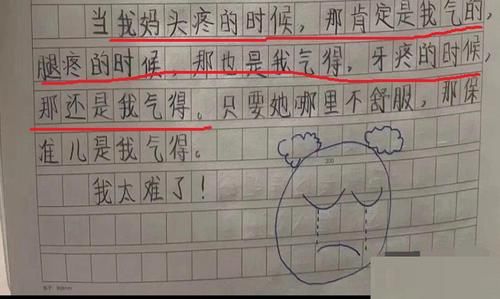 当我妈头疼的时候，那肯定是我气的，
腿疼的时候，那也是我气得，牙疼的时候，
那还是我气得。只要她哪里不舒服，那保
准儿是我气得。
我太难了！
300